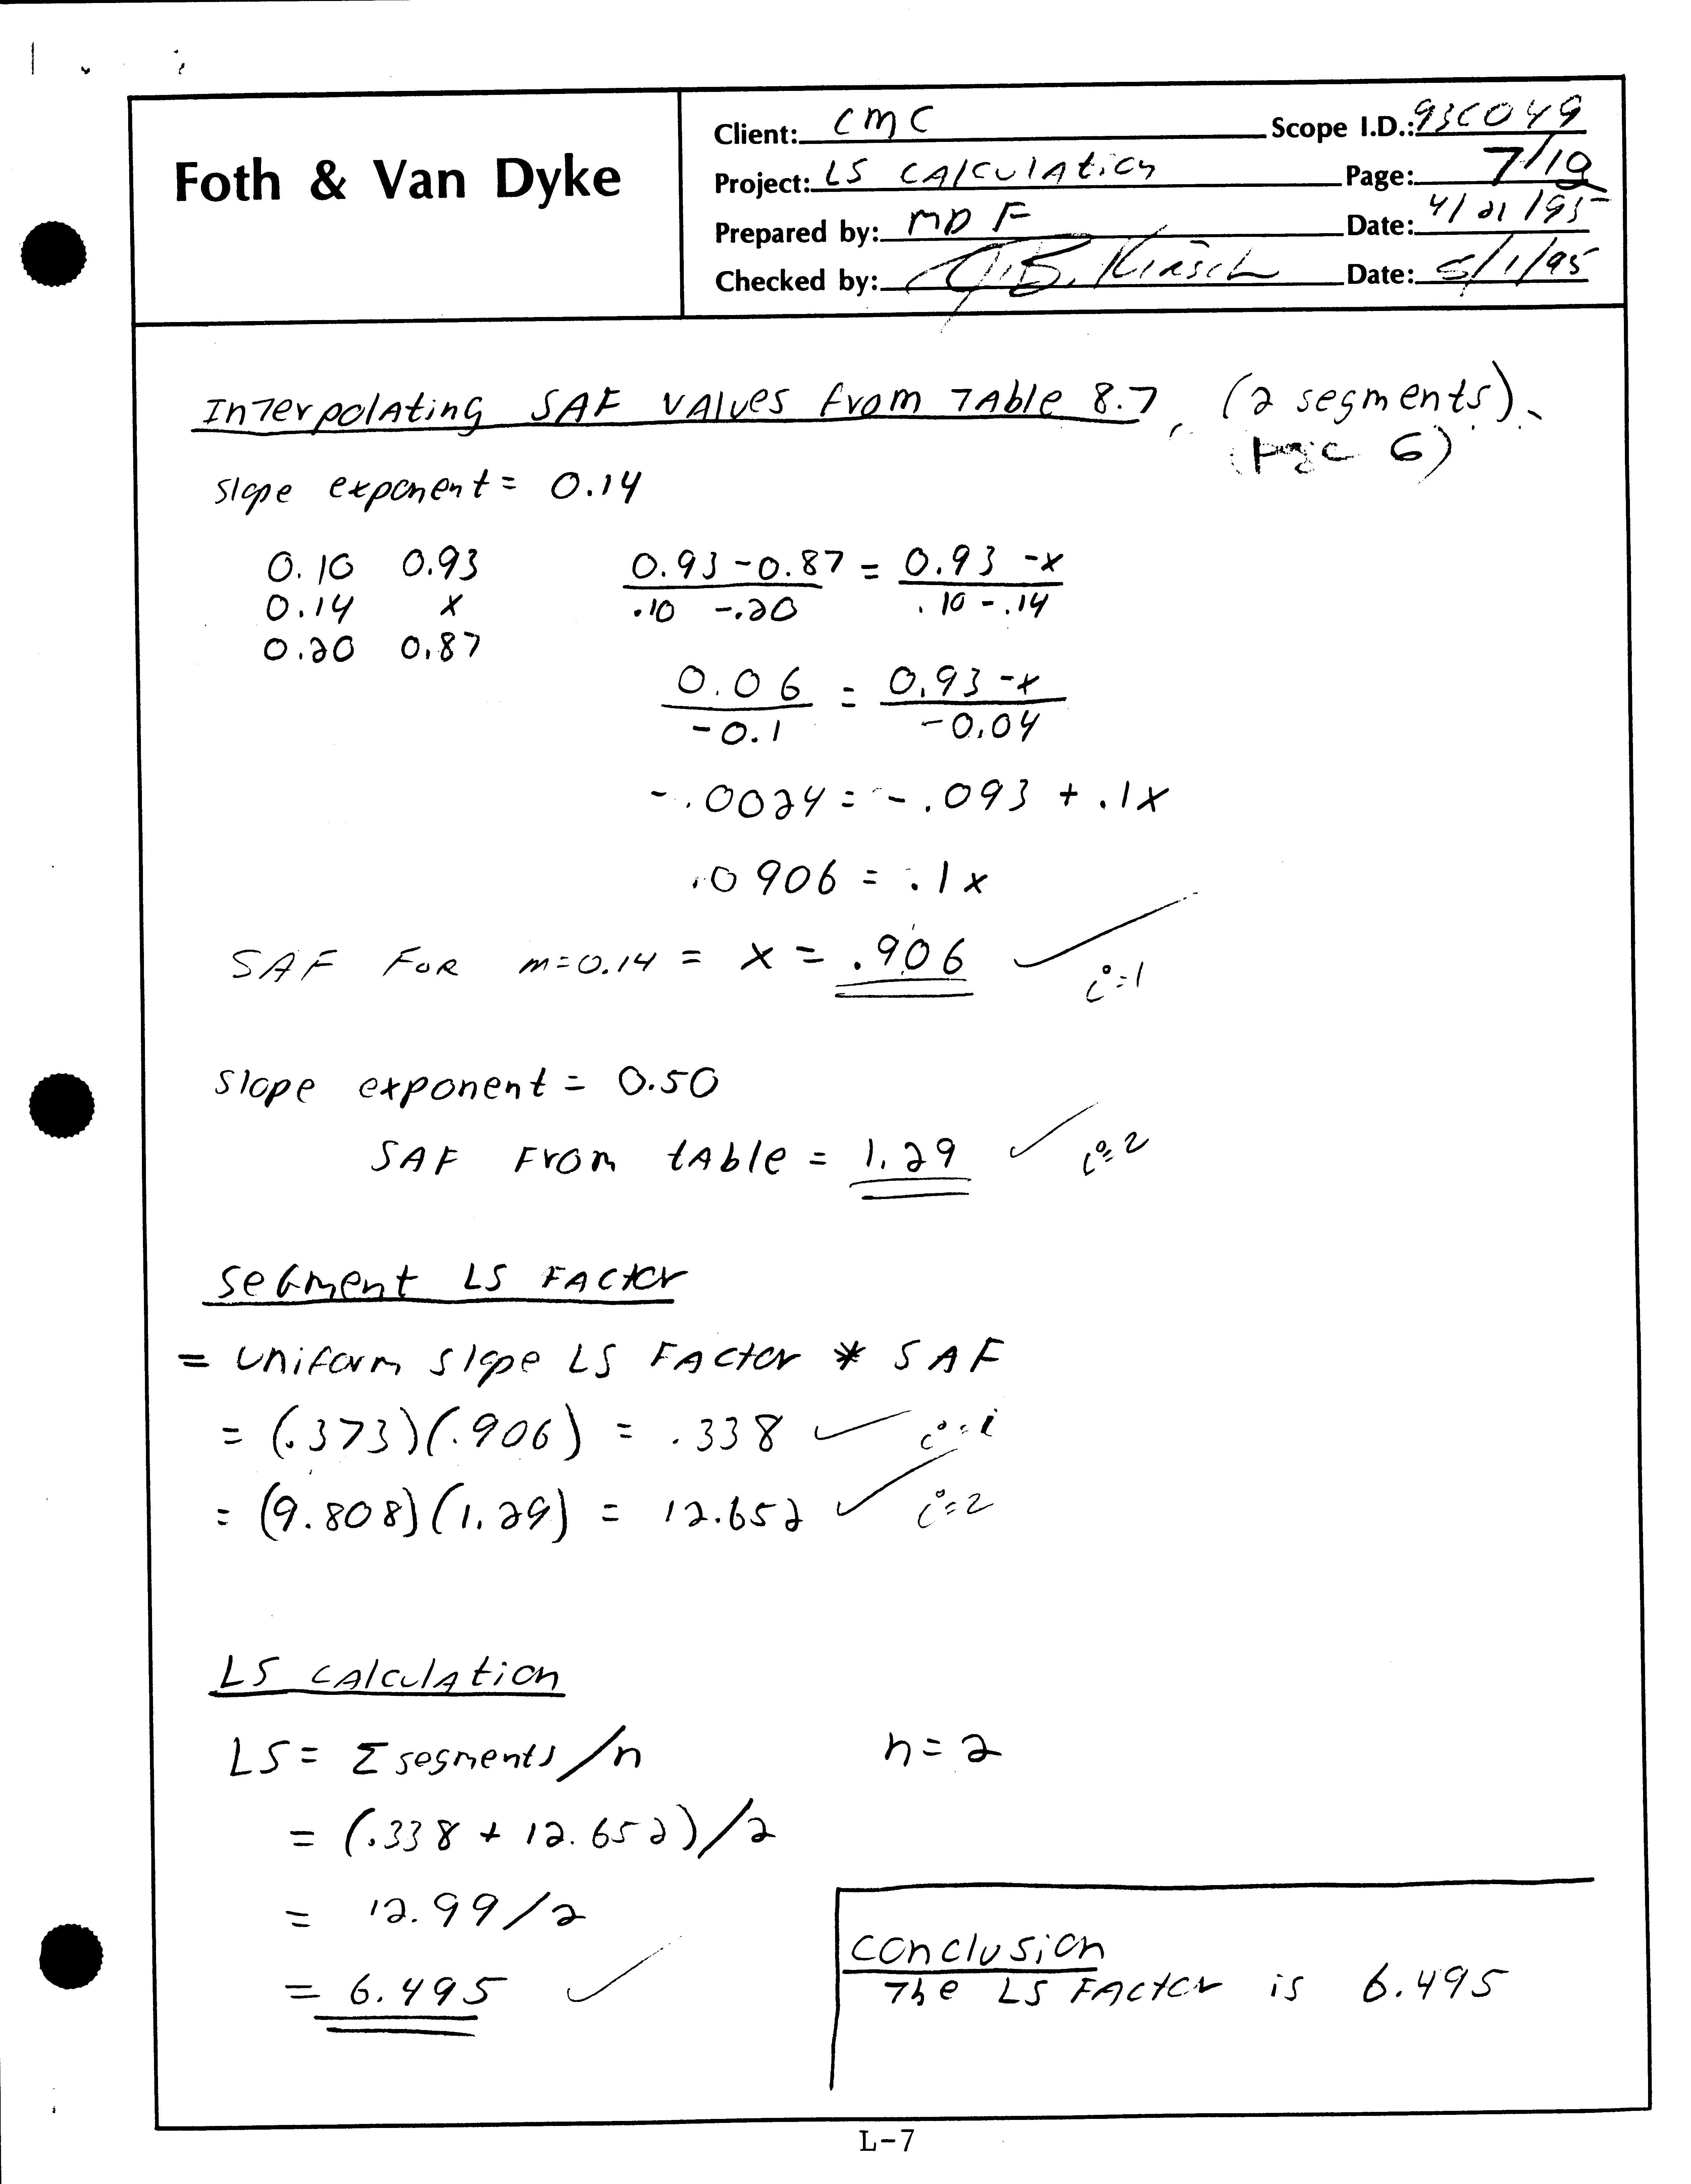 Foth & Van Dyke
Client: CMC Scope I.D.: 93C049
Project: LS CALCULATION Page: 7/10
Prepared by: MDF Date: 4/21/95
Checked by: J.B. Kirsch Date: 5/1/95
INTERPOLATING SAF VALUES FROM TABLE 8.7 (2 segments)
(page 6)
slope exponent = 0.14
0.10 0.93
0.14 x
0.20 0.87
0.93 - 0.87 = 0.93 - x
.10 - .20 .10 - .14
0.06 = 0.93 - x
-0.1 -0.04
-.0024 = -.093 + .1x
.0906 = .1x
SAF FOR m=0.14 = x = .906 ✓ i=1
slope exponent = 0.50
SAF FROM tABle = 1.29 ✓ i=2
SEGMENT LS FACTOR
= UNIFORM slope LS FACTOR * SAF
= (.373)(.906) = .338 ✓ i=1
= (9.808)(1.29) = 12.652 ✓ i=2
LS CALCULATION
LS = Σ segments/n n = 2
= (.338 + 12.652)/2
= 12.99/2
= 6.495 ✓
CONCLUSION
The LS FACTOR is 6.495
L-7